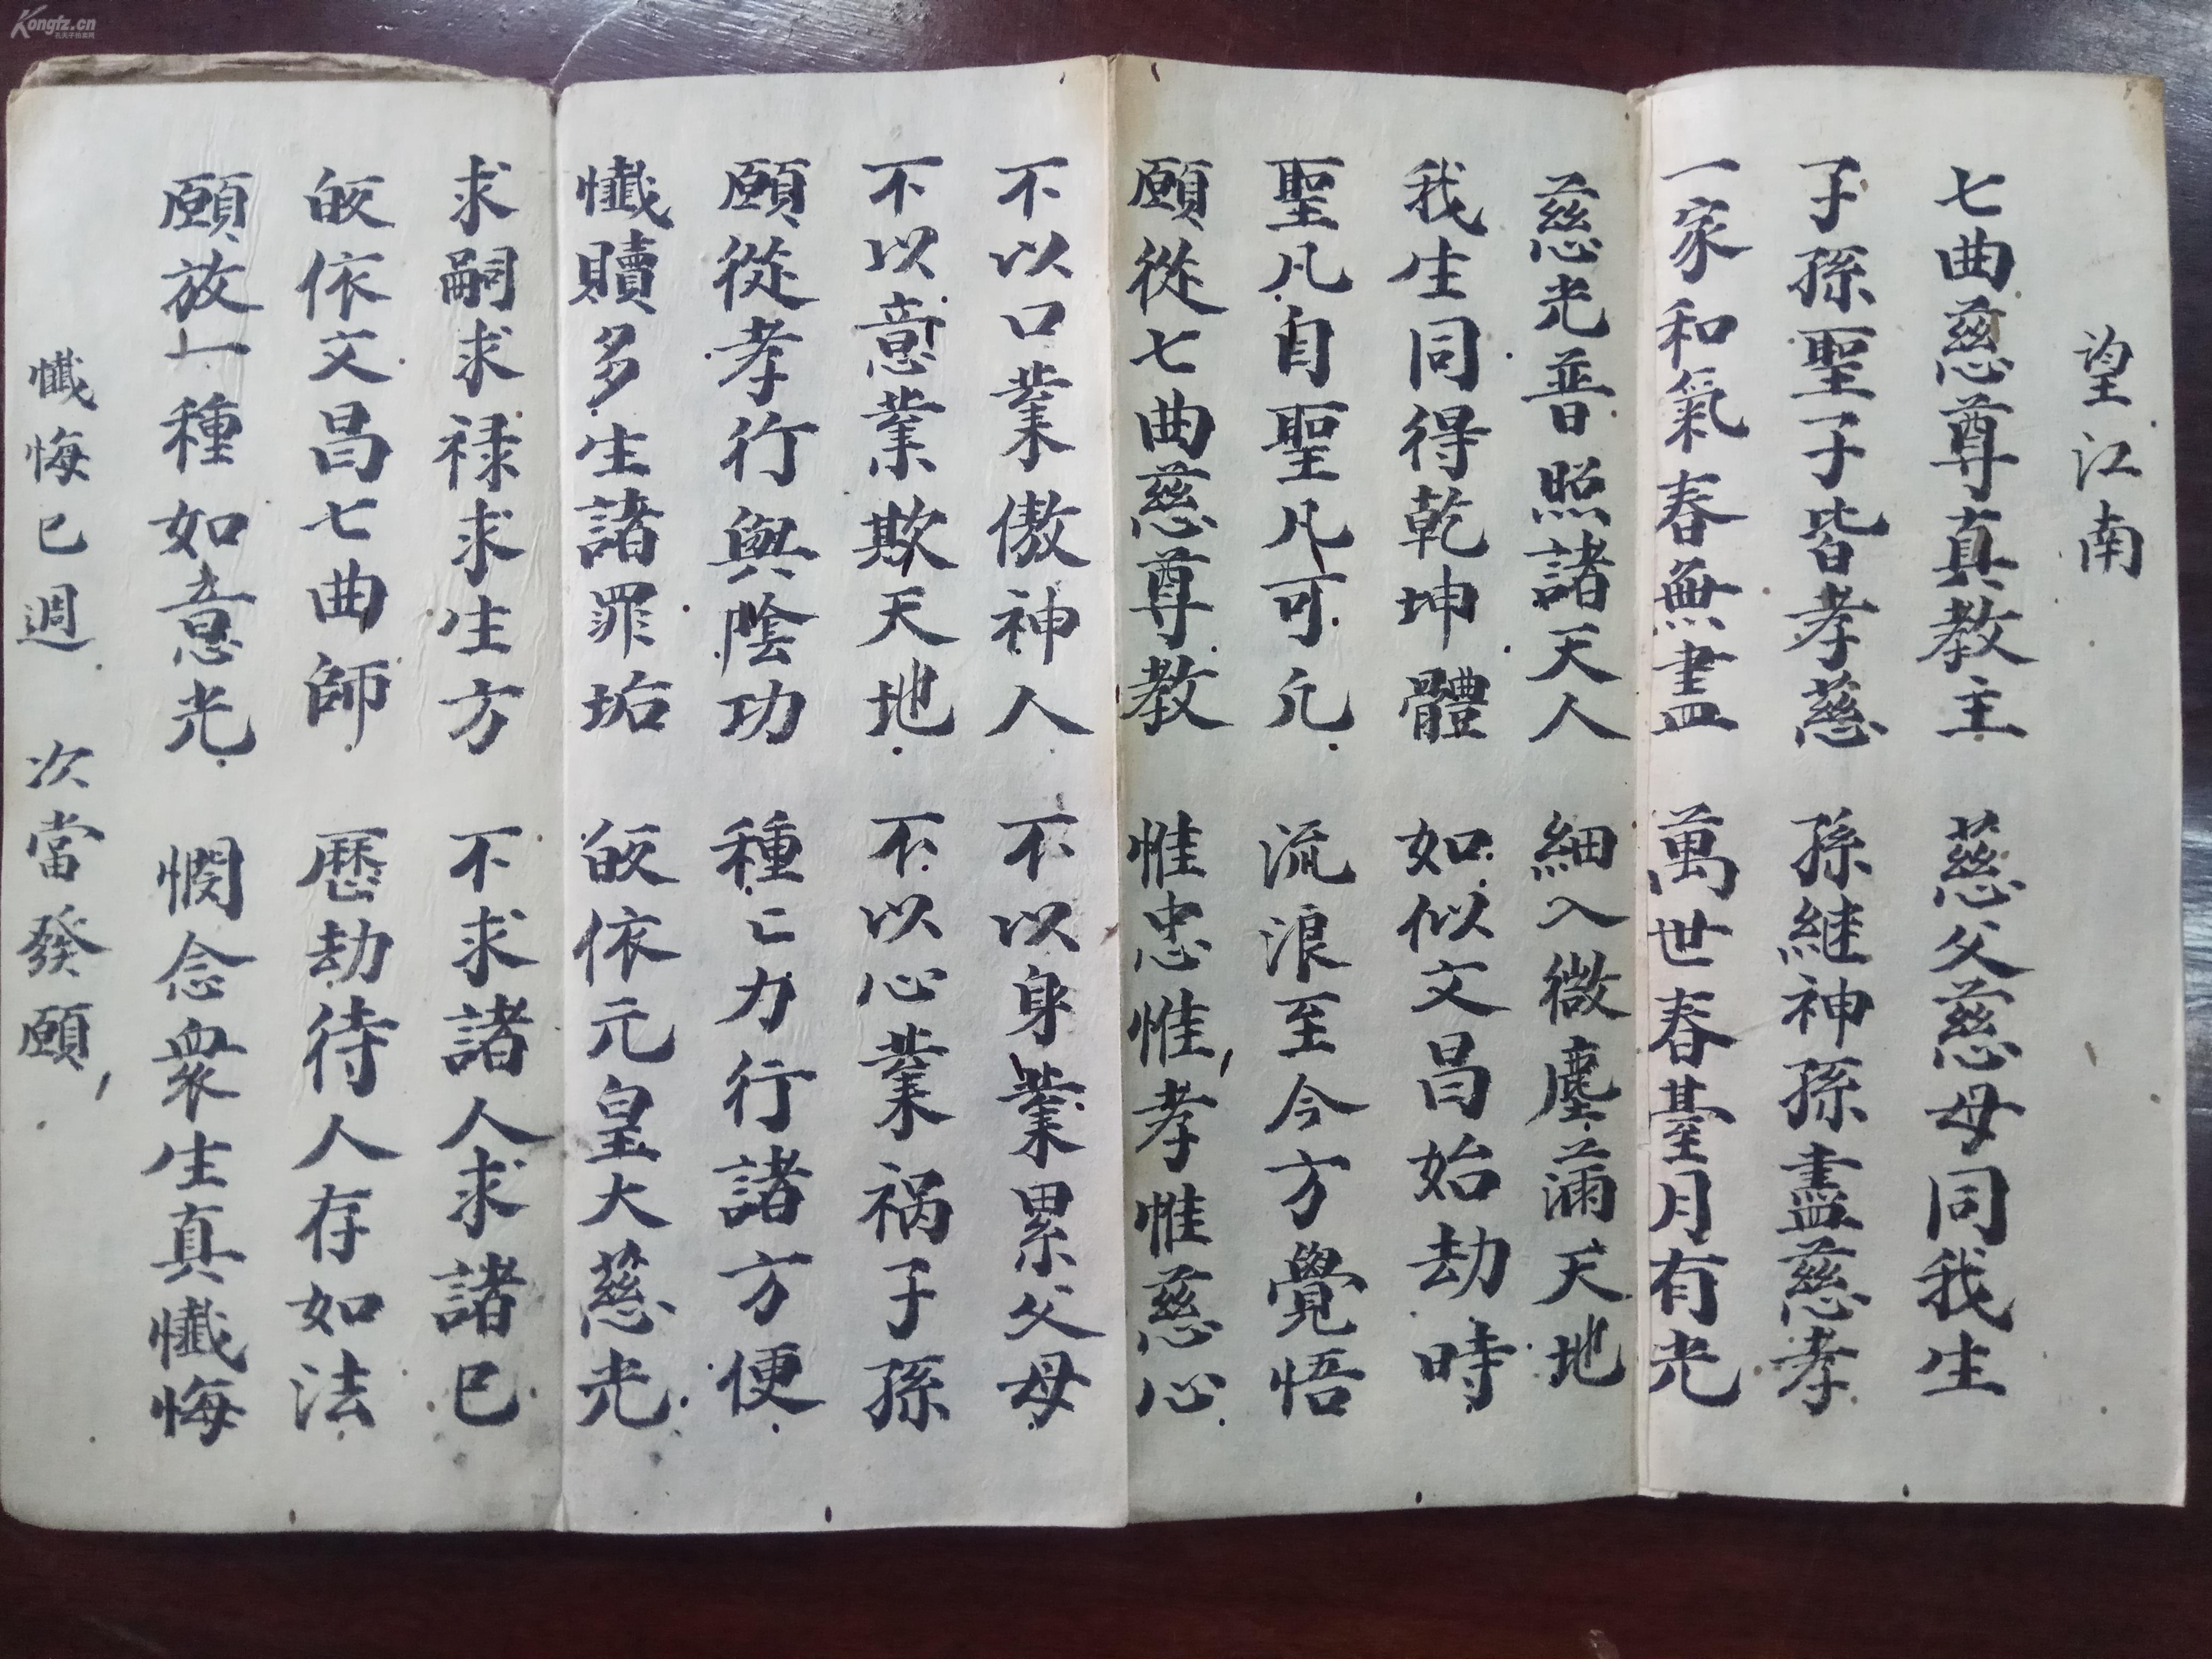 望江南
七曲慈尊真教主 慈父慈母同我生
子孫聖子皆孝慈 孫継神孫盡慈孝
一家和氣春無盡 萬世春臺月有光
慈光普照諸天人 細入微塵滿天地
我生同得乾坤體 如似文昌始劫時
聖凡自聖凡可兀 流浪至今方覺悟
願從七曲慈尊教 惟忠惟孝惟慈心
不以口業傲神人 不以身業累父母
不以意業欺天地 不以心業禍子孫
願從孝行與陰功 種亡力行諸方便
懺贖多生諸罪垢 皈依元皇大慈光
求嗣求禄求生方 不求諸人求諸已
皈依文昌七曲師 歷劫待人存如法
願放一種如意光 憫念衆生真懺悔
懺悔已週 次當發願
Kongfz.cn